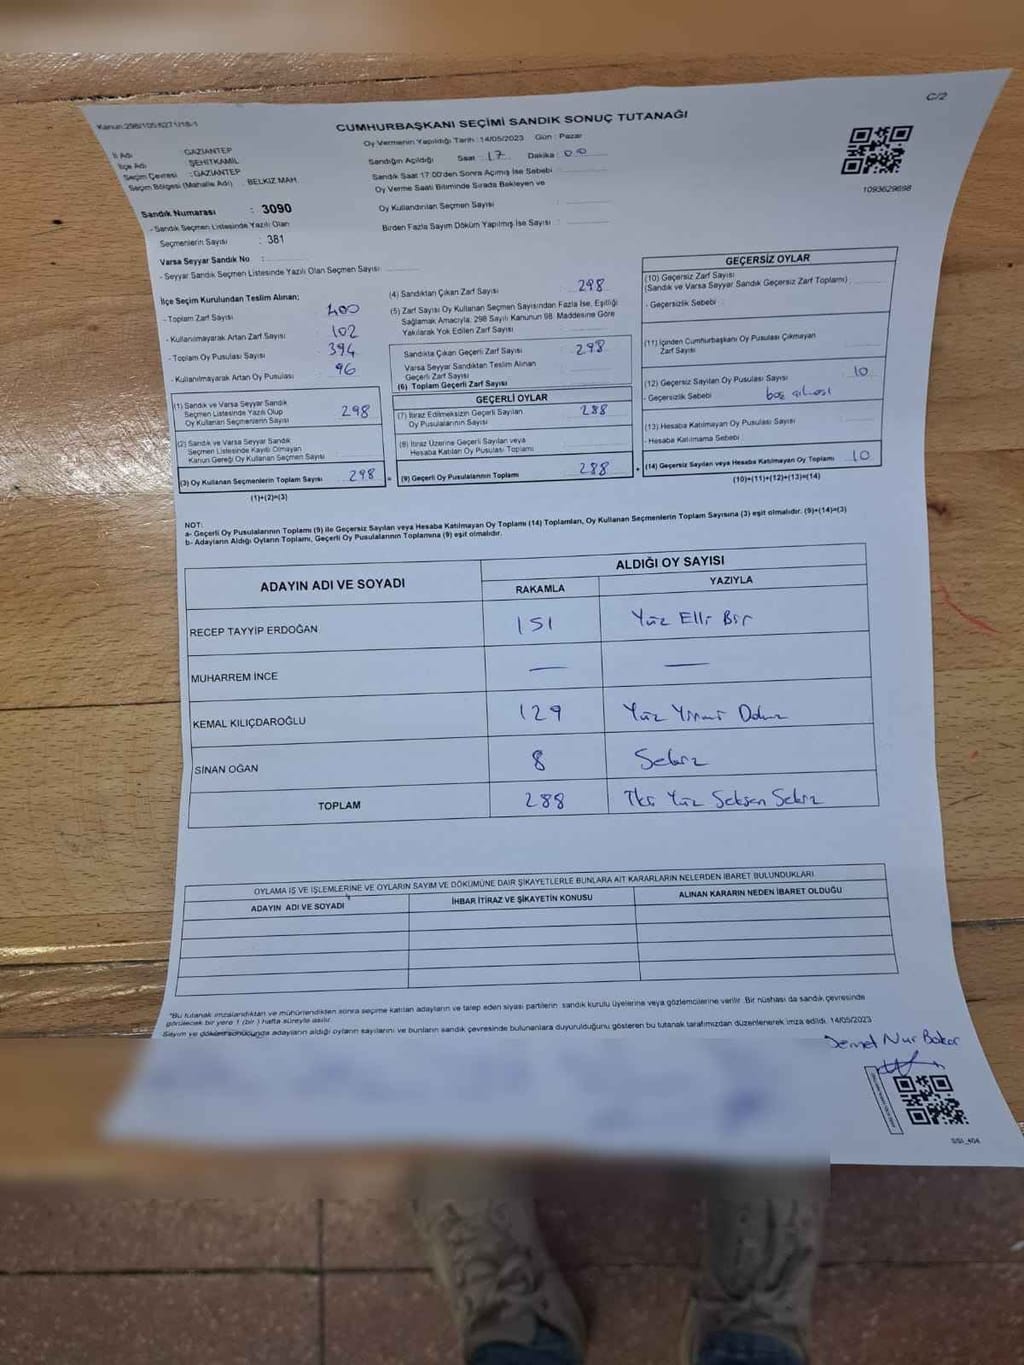 Kanun:298/105 6271/18-1
C/2
CUMHURBAŞKANI SEÇİMİ SANDIK SONUÇ TUTANAĞI
Oy Vermenin Yapıldığı Tarih :14/05/2023 Gün : Pazar
İl Adı : GAZİANTEP
İlçe Adı : ŞEHİTKAMİL
Seçim Çevresi : GAZİANTEP
Seçim Bölgesi (Mahalle Adı) : BELKIZ MAH.
Sandığın Açıldığı Saat : 17 Dakika : 00
Sandık Saat 17:00'den Sonra Açmış İse Sebebi
Oy Verme Saati Bitiminde Sırada Bekleyen ve
Oy Kullandırılan Seçmen Sayısı :
Birden Fazla Sayım Döküm Yapılmış İse Sayısı :
1093629698
Sandık Numarası : 3090
- Sandık Seçmen Listesinde Yazılı Olan
Seçmenlerin Sayısı : 381
Varsa Seyyar Sandık No :
- Seyyar Sandık Seçmen Listesinde Yazılı Olan Seçmen Sayısı:
İlçe Seçim Kurulundan Teslim Alınan;
- Toplam Zarf Sayısı : 400
- Kullanılmayarak Artan Zarf Sayısı : 102
- Toplam Oy Pusulası Sayısı : 394
- Kullanılmayarak Artan Oy Pusulası : 96
(1) Sandık ve Varsa Seyyar Sandık
Seçmen Listesinde Yazılı Olup
Oy Kullanan Seçmenlerin Sayısı : 298
(2) Sandık ve Varsa Seyyar Sandık
Seçmen Listesinde Kayıtlı Olmayan
Kanun Gereği Oy Kullanan Seçmen Sayısı :
(3) Oy Kullanan Seçmenlerin Toplam Sayısı : 298
(1)+(2)=(3)
(4) Sandıktan Çıkan Zarf Sayısı : 298
(5) Zarf Sayısı Oy Kullanan Seçmen Sayısından Fazla İse, Eşitliği
Sağlamak Amacıyla, 298 Sayılı Kanunun 98. Maddesine Göre
Yakılarak Yok Edilen Zarf Sayısı :
Sandıkta Çıkan Geçerli Zarf Sayısı : 298
Varsa Seyyar Sandıktan Teslim Alınan
Geçerli Zarf Sayısı :
(6) Toplam Geçerli Zarf Sayısı :
GEÇERLİ OYLAR
(7) İtiraz Edilmeksizin Geçerli Sayılan
Oy Pusulalarının Sayısı : 288
(8) İtiraz Üzerine Geçerli Sayılan veya
Hesaba Katılan Oy Pusulası Toplamı :
(9) Geçerli Oy Pusulalarının Toplamı : 288
GEÇERSİZ OYLAR
(10) Geçersiz Zarf Sayısı
(Sandık ve Varsa Seyyar Sandık Geçersiz Zarf Toplamı) :
- Geçersizlik Sebebi :
(11) İçinden Cumhurbaşkanı Oy Pusulası Çıkmayan
Zarf Sayısı :
(12) Geçersiz Sayılan Oy Pusulası Sayısı : 10
- Geçersizlik Sebebi : boş çıkması
(13) Hesaba Katılmayan Oy Pusulası Sayısı :
- Hesaba Katılmama Sebebi :
(14) Geçersiz Sayılan veya Hesaba Katılmayan Oy Toplamı : 10
(10)+(11)+(12)+(13)=(14)
NOT:
a- Geçerli Oy Pusulalarının Toplamı (9) ile Geçersiz Sayılan veya Hesaba Katılmayan Oy Toplamı (14) Toplamları, Oy Kullanan Seçmenlerin Toplam Sayısına (3) eşit olmalıdır. (9)+(14)=(3)
b- Adayların Aldığı Oyların Toplamı, Geçerli Oy Pusulalarının Toplamına (9) eşit olmalıdır.
ADAYIN ADI VE SOYADI
ALDIĞI OY SAYISI
RAKAMLA YAZIYLA
RECEP TAYYİP ERDOĞAN 151 Yüz Elli Bir
MUHARREM İNCE — —
KEMAL KILIÇDAROĞLU 129 Yüz Yirmi Dokuz
SİNAN OĞAN 8 Sekiz
TOPLAM 288 İki Yüz Seksen Sekiz
OYLAMA İŞ VE İŞLEMLERİNE VE OYLARIN SAYIM VE DÖKÜMÜNE DAİR ŞİKAYETLERLE BUNLARA AİT KARARLARIN NELERDEN İBARET BULUNDUKLARI
ADAYIN ADI VE SOYADI İHBAR İTİRAZ VE ŞİKAYETİN KONUSU ALINAN KARARIN NEDEN İBARET OLDUĞU
"Bu tutanak imzalandıktan ve mühürlendikten sonra seçime katılan adayların ve talep eden siyasi partilerin sandık kurulu üyelerine veya gözlemcilerine verilir. Bir nüshası da sandık çevresinde
görülecek bir yere 1 (bir ) hafta süreyle asılır.
Sayım ve döküm sonucunda adayların aldığı oyların sayılarını ve bunların sandık çevresinde bulunanlara duyurulduğunu gösteren bu tutanak tarafımızdan düzenlenerek imza edildi. 14/05/2023
Nur
SSI_404